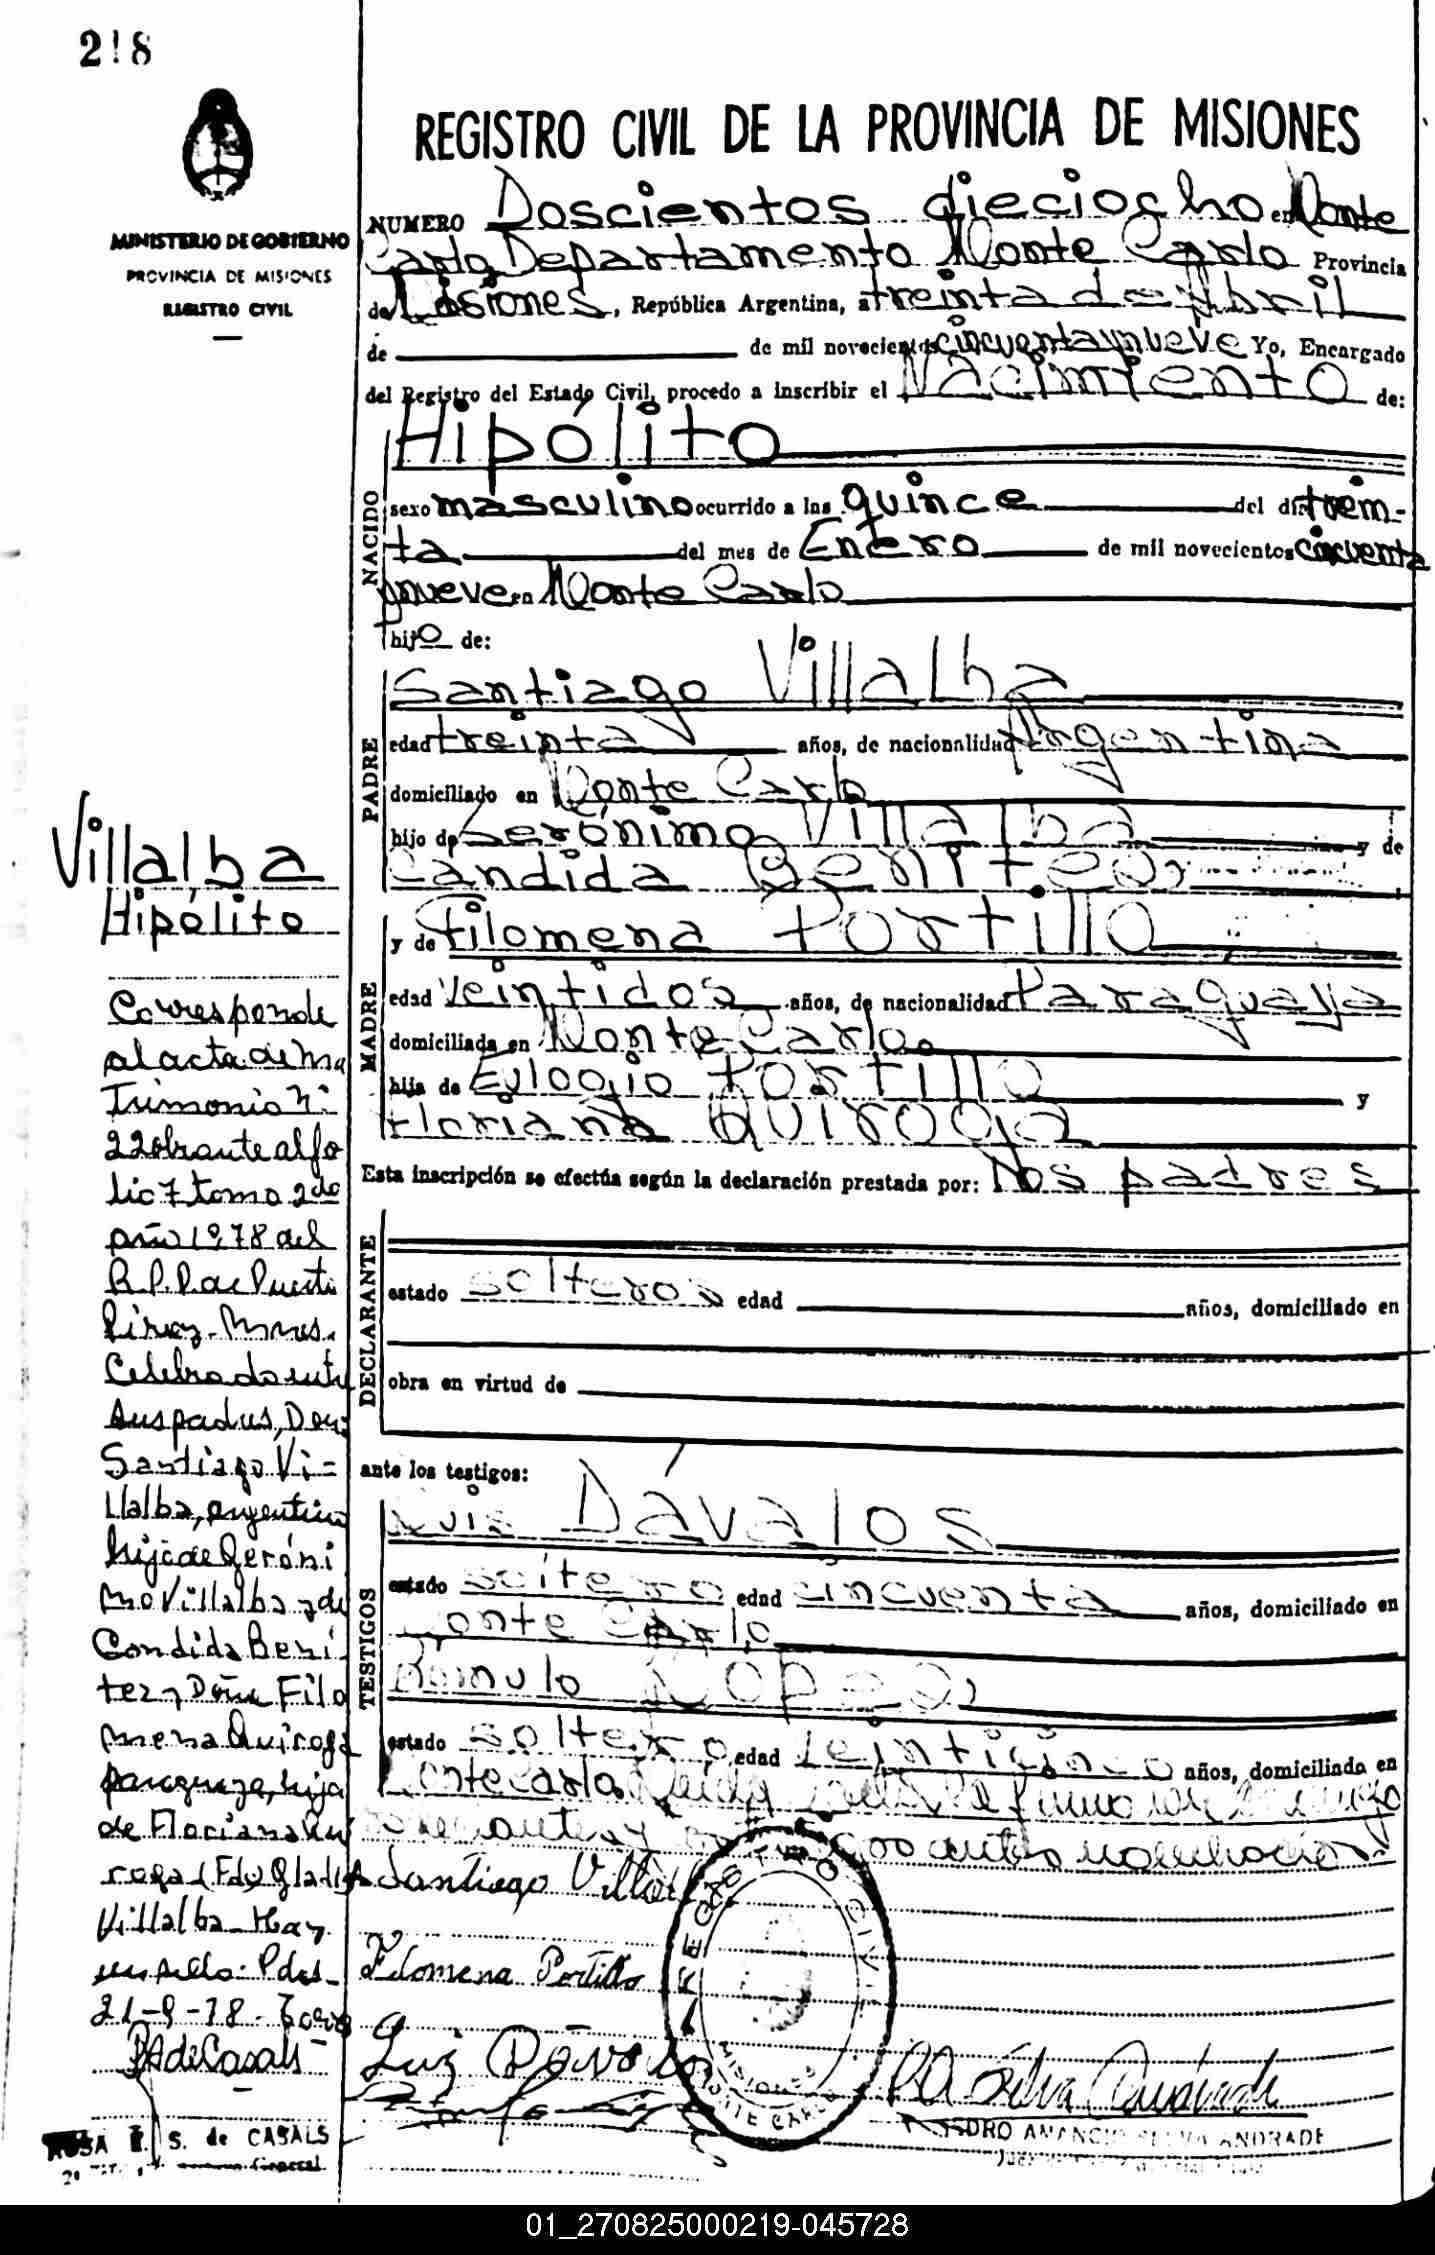 218
MINISTERIO DE GOBIERNO
PROVINCIA DE MISIONES
REGISTRO CIVIL
REGISTRO CIVIL DE LA PROVINCIA DE MISIONES
NUMERO Doscientos dieciocho en Monte
Carlo Departamento Monte Carlo Provincia
de Misiones, República Argentina, a treinta de Abril
de de mil novecientos cincuentaynueve Yo, Encargado
del Registro del Estado Civil, procedo a inscribir el Nacimiento de:
NACIDO
Hipólito
sexo masculino ocurrido a las quince del día trein-
ta del mes de Enero de mil novecientos cincuenta
ynueve en Monte Carlo
hijo de:
PADRE
Santiago Villalba
edad treinta años, de nacionalidad Argentina
domiciliado en Monte Carlo
hijo de Gerónimo Villalba y de
Candida Benitez
MADRE
y de Filomena Portillo
edad Veintidos años, de nacionalidad Paraguaya
domiciliada en Monte Carlo
hija de Eulogio Portillo y
Floriana Quiroga
Esta inscripción se efectúa según la declaración prestada por: los padres
DECLARANTE
estado solteros edad años, domiciliado en
obra en virtud de
ante los testigos:
TESTIGOS
Luis Dávalos
estado soltero edad cincuenta años, domiciliado en
Monte Carlo
Rómulo López
estado soltero edad veinticinco años, domiciliado en
Monte Carlo
Santiago Villalba
Filomena Portillo
Luiz Dávalos
REGISTRO CIVIL
MISIONES
MONTE CARLO
PEDRO AMANCIO SILVA ANDRADE
Villalba
Hipólito
Corresponde
al acta de ma
trimonio N°
22 obrante al fo
lio 7 tomo 2do
año 1978 del
R.P.P. de Puerto
Piray - Mnes.
Celebrado entre
sus padres, Don:
Santiago Vi=
llalba, argentino
hijo de Geróni
mo Villalba y de
Candida Beni
tez y Doña Filo
mena Quiroga
paraguaya, hija
de Floriana Qui
roga (Fdo) Gladis
Villalba - Hay
un sello. Pdas
21-9-78
RA de Casals
ROSA E. S. de CASALS
01_270825000219-045728